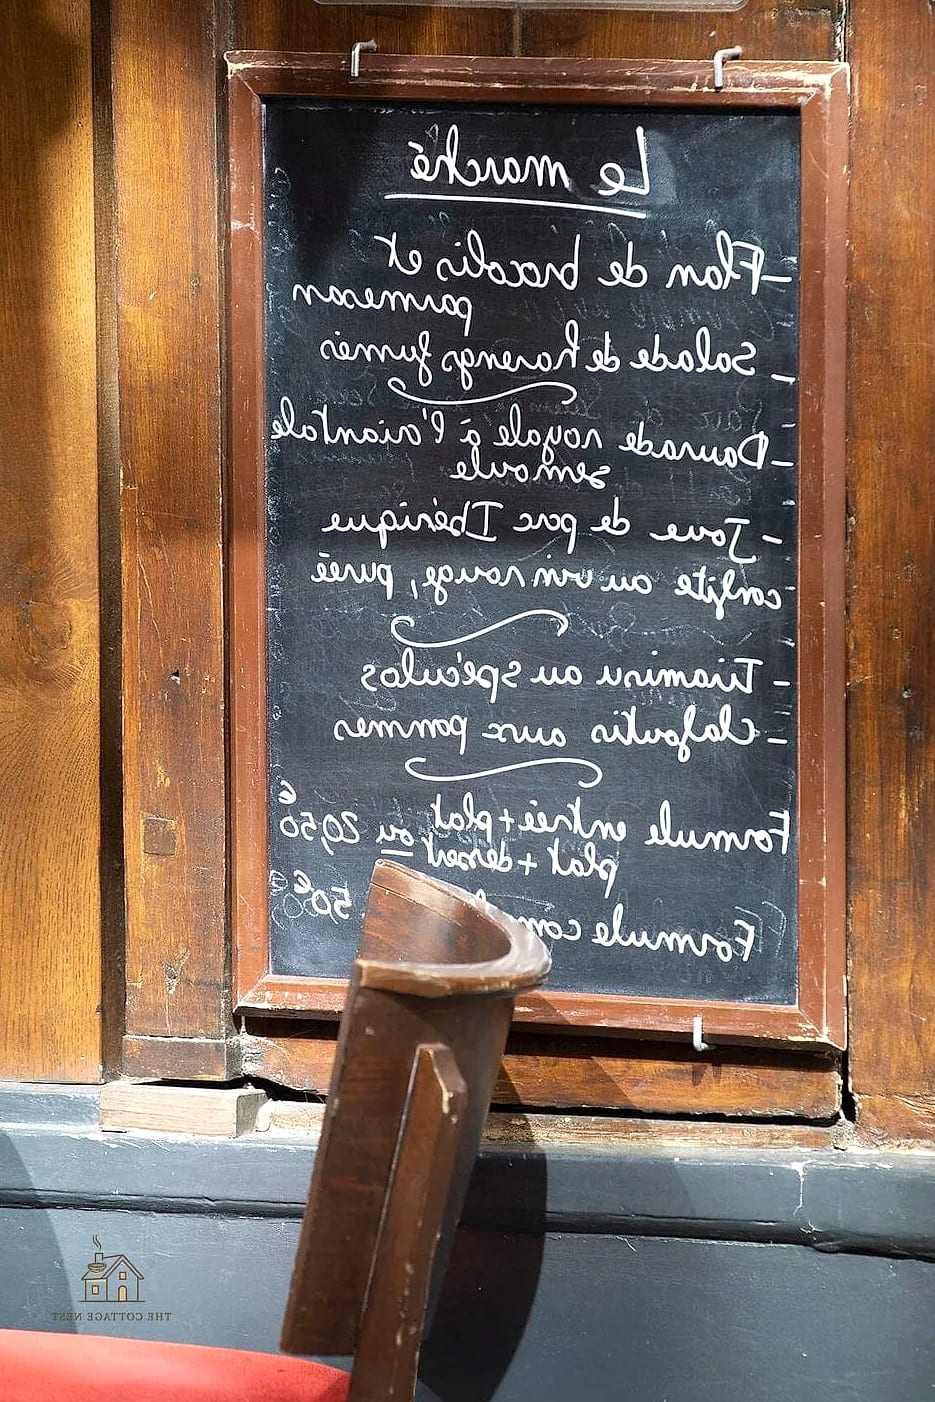 Le marché
- Flan de brocolis et
parmesan
- Salade de harengs fumés
- Daurade royale à l'orientale
semoule
- Joue de porc Ibérique
confite au vin rouge, purée
- Tiramisu au spéculos
- Clafoutis aux pommes
Formule entrée + plat ou 20,50€
plat + dessert
Formule com 50€
THE COTTAGE NEST